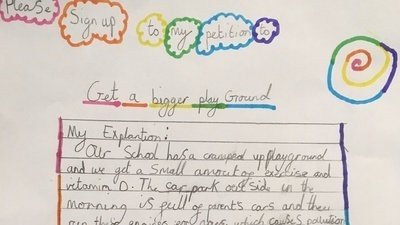 Please Sign up to my petition to
Get a bigger play Ground
My Explantion:
Our School has a cramped up playground
and we get a Small amount of exercise and
vitamin D. The car park out side in the
morning is full of parents cars and they
run their engines for ages, which causes pollution